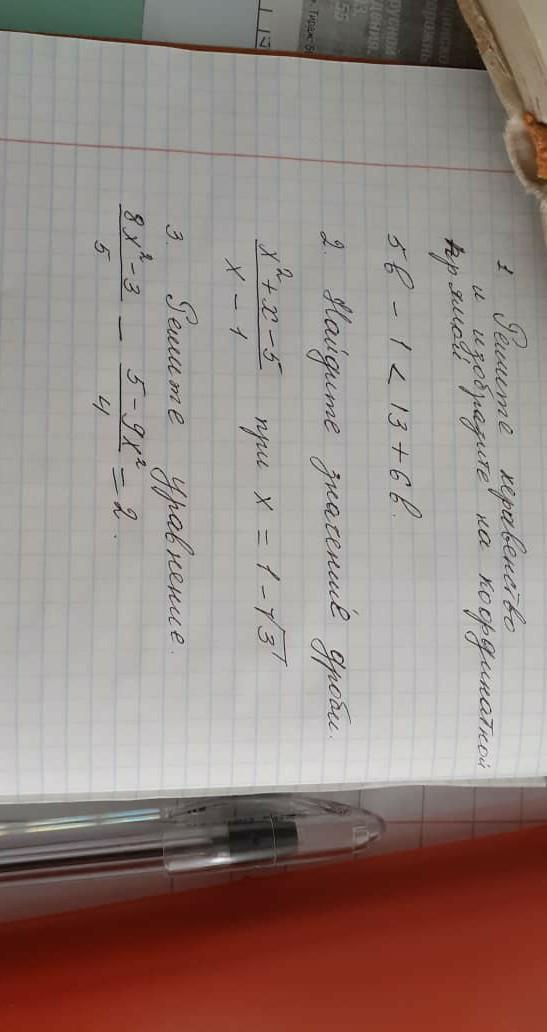 1 Решите неравенство
и изобразите на координатной
прямой
5в - 1 < 13 + 6в.
2. Найдите значение дроби.
x² + x - 5 / x - 1 при x = 1 - √3
3. Решите уравнение.
8x² - 3 / 5 - 5 - 9x² / 4 = 2.